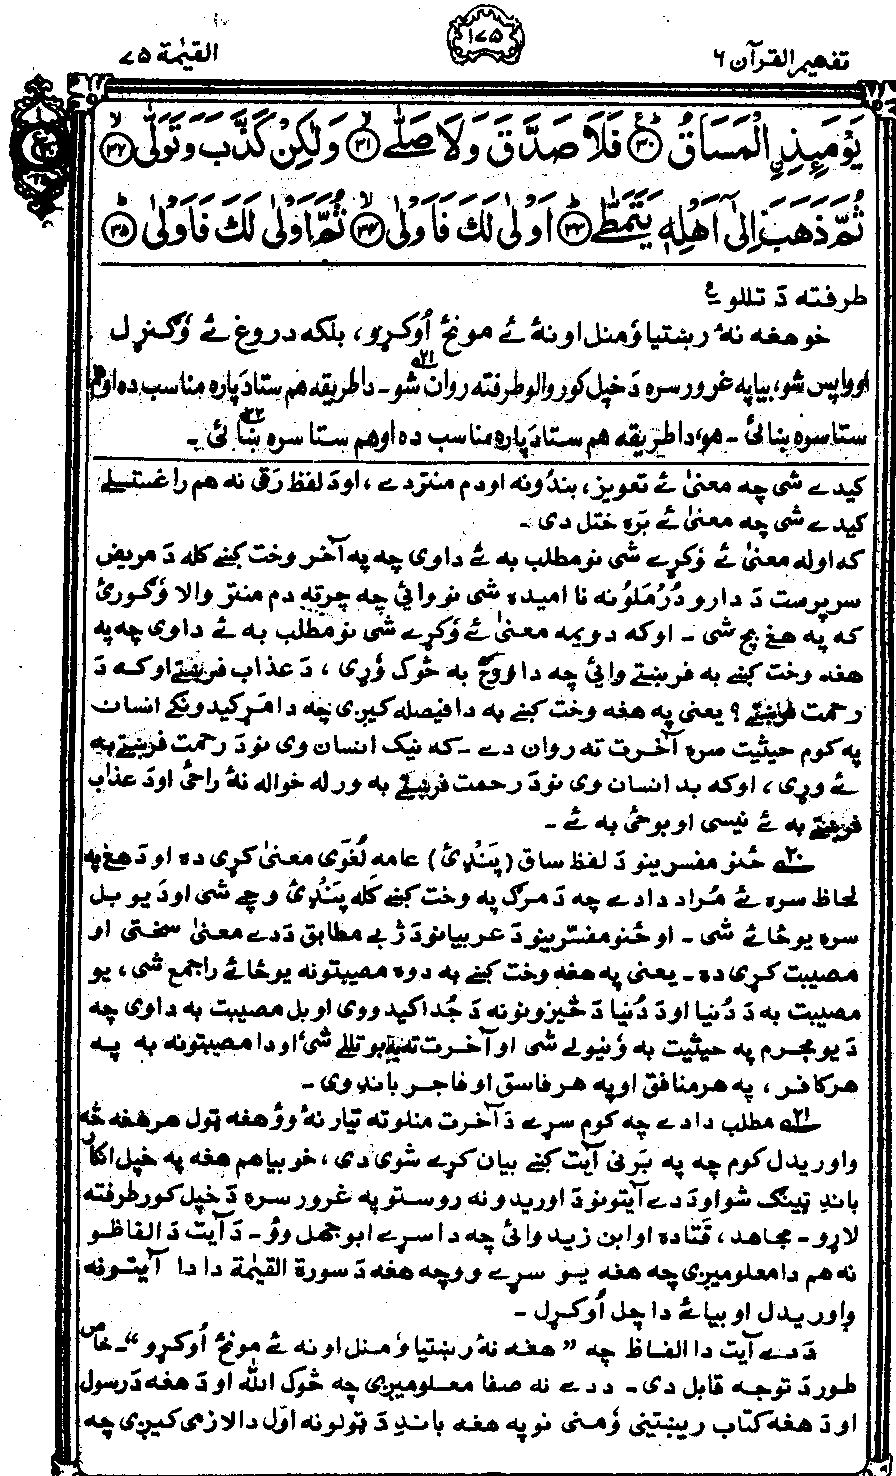 تفهيم القرآن ۶
۱۷۵
القيٰمة ۷۵
يَوْمَئِذِ ࣙالْمَسَاقُ ۳۰ فَلَا صَدَّقَ وَلَا صَلّٰى ۳۱ وَلٰكِنْ كَذَّبَ وَتَوَلّٰى ۳۲
ثُمَّ ذَهَبَ اِلٰٓى اَهْلِهٖ يَتَمَطّٰى ۳۳ اَوْلٰى لَكَ فَاَوْلٰى ۳۴ ثُمَّ اَوْلٰى لَكَ فَاَوْلٰى ۳۵
طرفته دَ تللو
خو هغه نهٔ رښتيا وُمنل او نهٔ ئے مونځ اُوکړو، بلکه دروغ ئے وُګنړل
او واپس شو، بيا په غرور سره دَ خپل کور والو طرفته روان شو۔۲۱ دا طريقه هم ستا دَپاره مناسب ده او هم
ستا سره ښائى ۔ هو، دا طريقه هم ستا دَپاره مناسب ده او هم ستا سره ښائى ۲۲ ۔
کيدے شى چه معنىٰ ئے تعويز، بندُونه او دم منتر دے ، او دَ لفظ رَقى نه هم راغستيلے
کيدے شى چه معنىٰ ئے بَره ختل دى ۔
که اوله معنىٰ ئے وُکړے شى نو مطلب به ئے دا وى چه په آخر وخت کښے کله دَ مريض
سرپرست دَ دارو دُرملو نه نا اميده شى نو وائي چه چرته دم منتر والا وُګورئ
که په هغے بچ شى ۔ او که دويمه معنىٰ ئے وُکړے شى نو مطلب به ئے دا وى چه په
هغه وخت کښے به فرښتے وائي چه دا روح به څوک وُړى ، دَ عذاب فرښتے او که دَ
رحمت فرښتے ؟ يعنى په هغه وخت کښے به دا فيصله کيږى چه دا مَرکيدونکے انسان
په کوم حيثيت سره آخرت ته روان دے ۔ که نيک انسان وى نو دَ رحمت فرښتے به
ئے وړى ، او که بد انسان وى نو دَ رحمت فرښتے به ور له خواله نهٔ راځى او دَ عذاب
فرښتے به ئے نيسى او بوځى به ئے ۔
۲۰ ځنو مفسرينو دَ لفظ ساق (پَنډئ) عامه لُغَوى معنىٰ کړى ده او دَ هغے په
لحاظ سره ئے مُراد دا دے چه دَ مرګ په وخت کښے کله پَنډئ وچے شى او دَ يو بل
سره يو ځائے شى ۔ او ځنو مفسّرينو دَ عربيانو دَ ژبے مطابق دَ دے معنىٰ سختى او
مصيبت کړى ده ۔ يعنى په هغه وخت کښے به دوه مصيبتونه يو ځائے راجمع شى ، يو
مصيبت به دَ دُنيا او دَ دُنيا دَ څيزونو نه دَ جُدا کيدو وى او بل مصيبت به دا وى چه
دَ يو مجرم په حيثيت به وُنيولے شى او آخرت ته به بوتللے شى او دا مصيبتونه به په
هر کافر ، په هر منافق او په هر فاسق او فاجر باندِ وى ۔
۲۱ مطلب دا دے چه کوم سړے دَ آخرت منلو ته تيار نهٔ وؤ هغه ټول هر هغه څه
واوريدل کوم چه په بَرنى آيت کښے بيان کړے شوى دى ، خو بيا هم هغه په خپل انکار
باندِ ټينګ شو او دَ دے آيتونو دَ اوريدو نه روستو په غرور سره دَ خپل کور طرفته
لاړو ۔ مجاهد ، قَتاده او ابن زيد وائي چه دا سړے ابوجهل وؤ ۔ دَ آيت دَ الفاظو
نه هم دا معلوميږى چه هغه يو سړے وو چه هغه دَ سورة القيٰمة دا دا آيتونه
واوريدل او بيا ئے دا چل اُوکړل ۔
دَ دے آيت دا الفاظ چه ” هغه نهٔ رښتيا وُمنل او نه ئے مونځ اُوکړو “۔ خاص
طور دَ توجه قابل دى ۔ دَ دے نه صفا معلوميږى چه څوک الله او دَ هغه دَ رسول
او دَ هغه کتاب ريښتينى وُمنى نو په هغه باندِ دَ ټولو نه اوّل دا لازمى کيږى چه